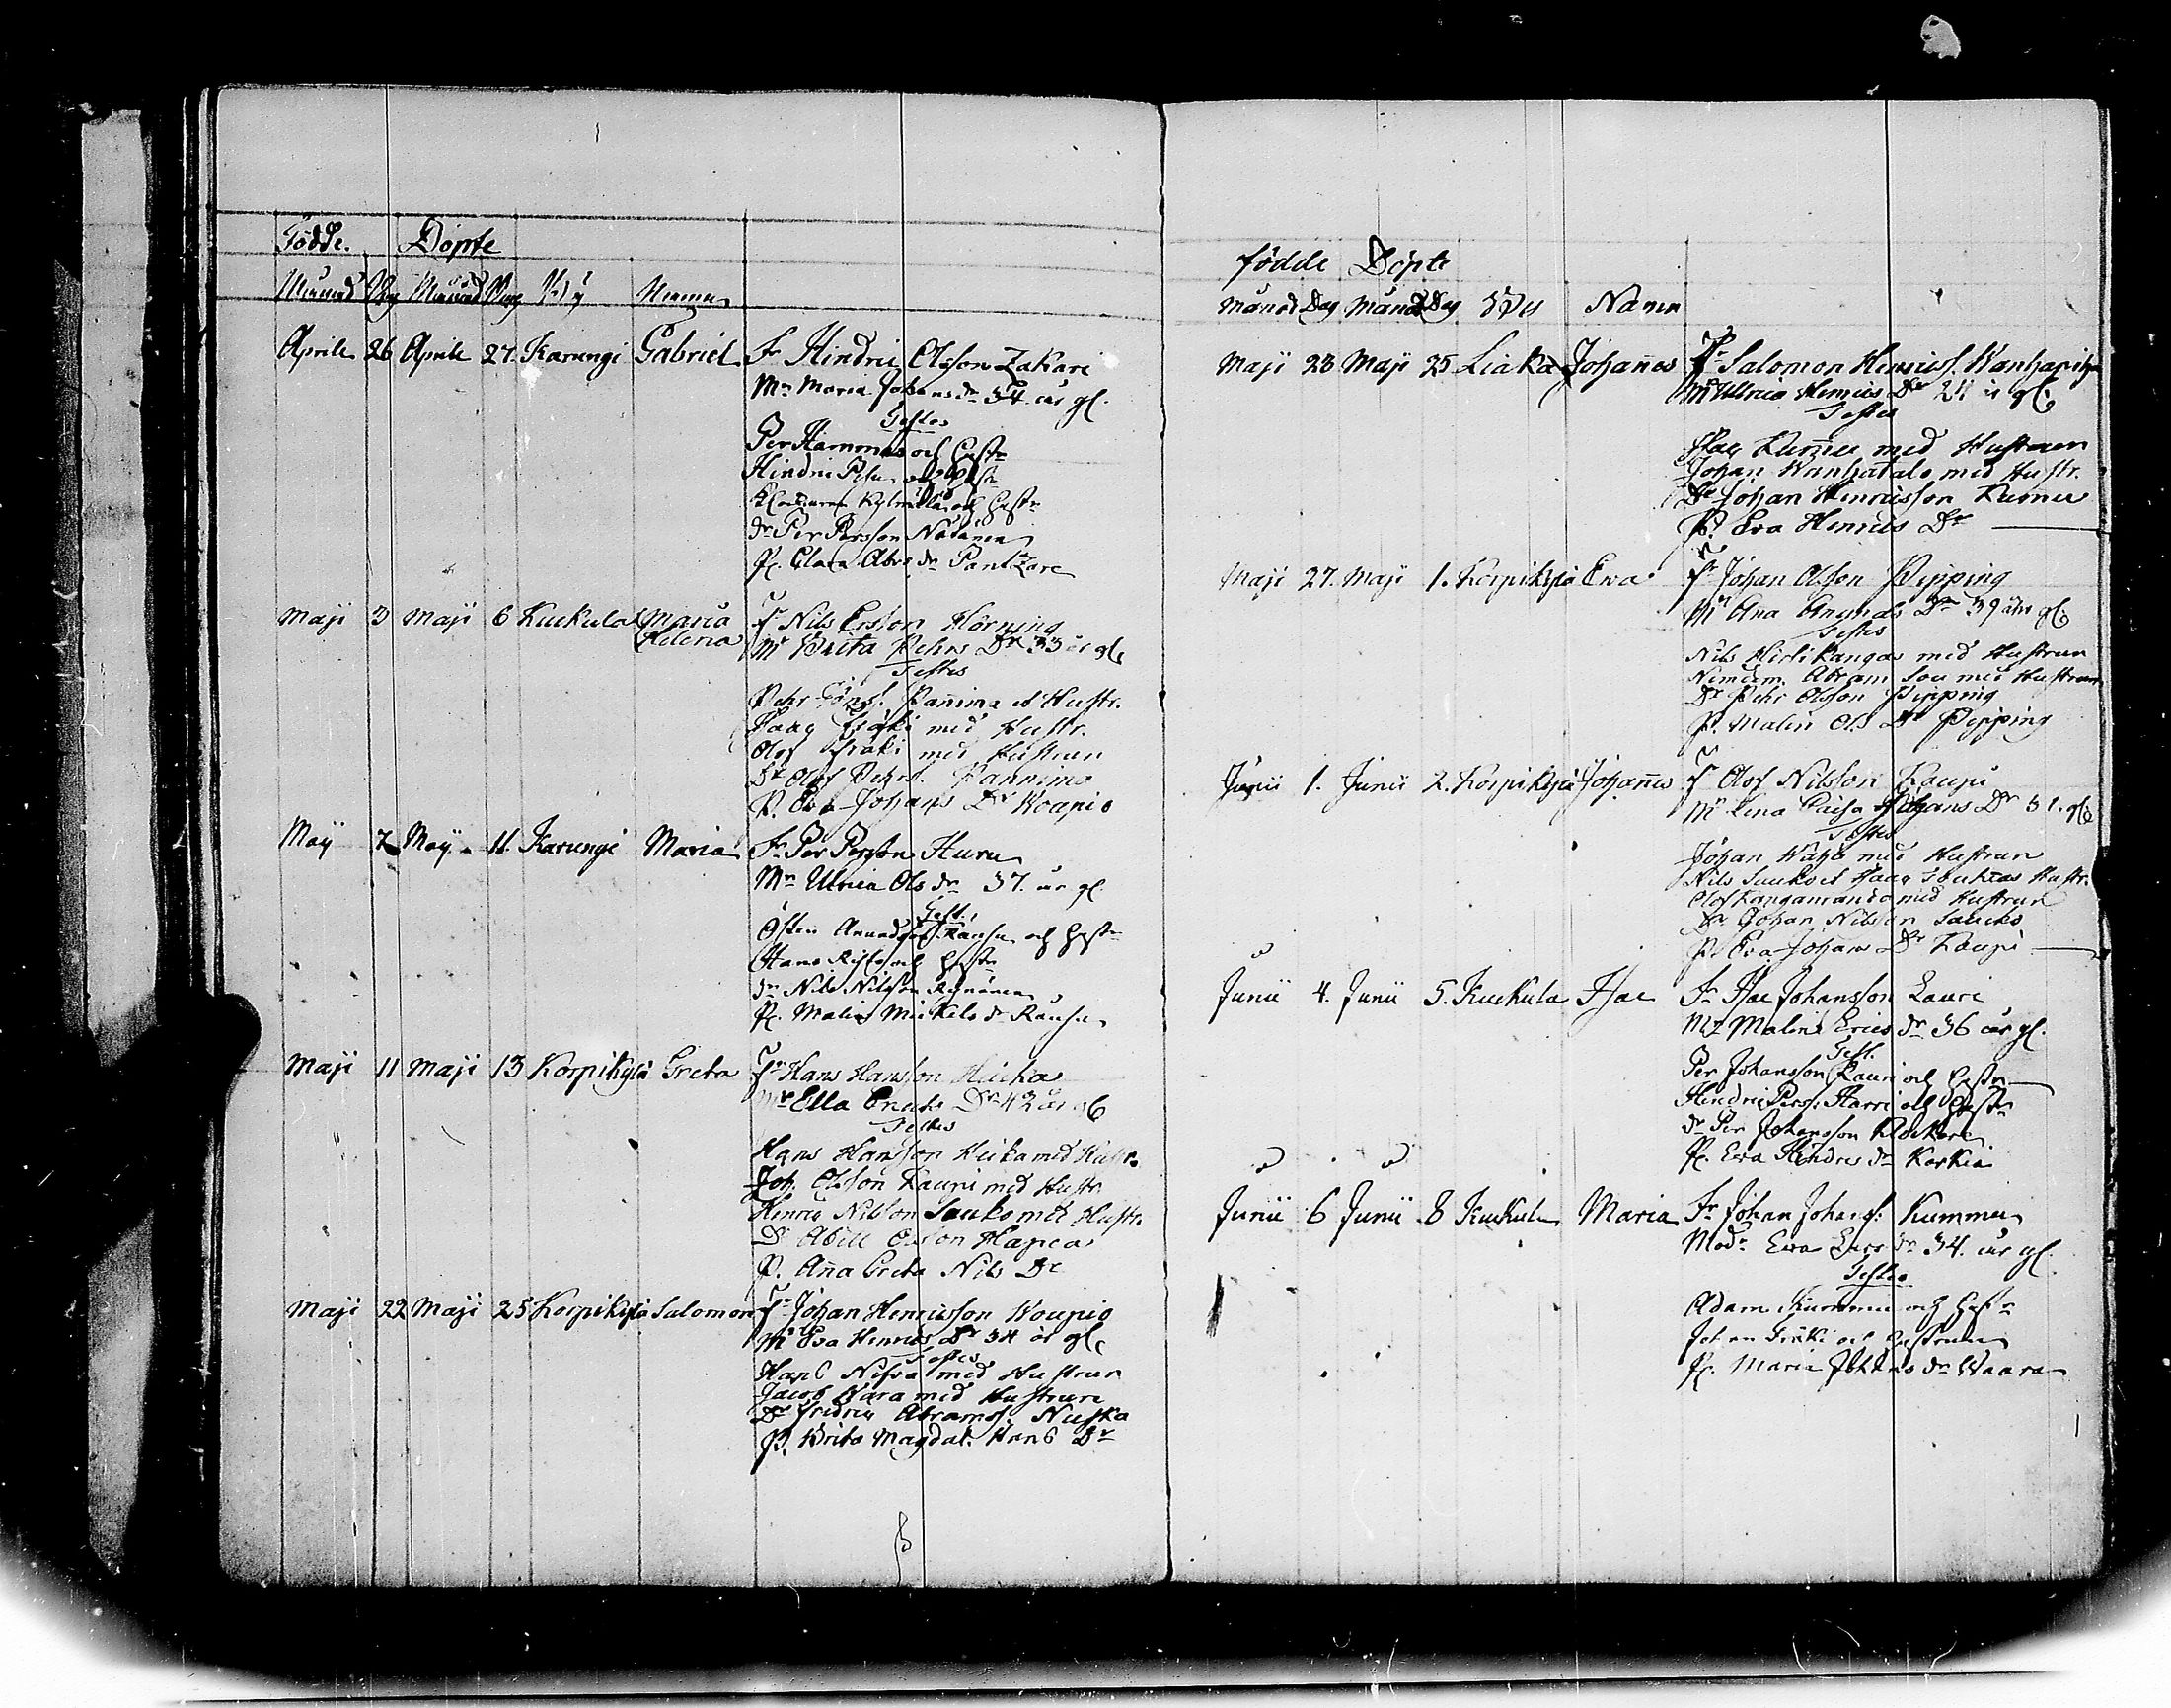 Födde. Döpte
Månad Dag Månad Dag By Namn
Aprile 26 Aprile 27. Karungi Gabriel Fr Hindric Olsson Zakari
Mr Maria Johans dr 34 år gl.
Testes
Per Hammar och hustr
Hindric och hustr
och hustr
dr Per Persson Näränen
P. Clara Abr. dr Pantzare
Maji 3 Maji 6 Kuckula Maria Helena Fr Nils Ersson Hörning
Mr Brita Pehrs Dr 33 år gl.
Testes
Pehr Panima et Hustr.
Isaac Fräki med Hustr.
Olof Fräki med Hustrun
Dr Olof Pehrs. Pannima
P. Eva Johans Dr Woapio
May 7 May 11 Karungi Maria Fr Per Persson Huru
Mr Ulrica Ols dr 37. år gl.
Test.
Östen och hustr
Hans och hustr
dr Nils Nilsson
P. Malin Mickels dr
Maji 11 Maji 13 Korpikylä Greta Fr Hans Hansson Heika
Mr Ella Erichs Dr 42 år gl
Testes
Hans Hansson Heika med Hustr.
Joh. Olsson Kaupi med Hustr.
Henric Nilsson Sauko med Hustr.
Dr Abell Olsson
P. Aña Greta Nils Dr
Maji 22 Maji 25 Korpikylä Salomon Fr Johan Henricsson Woupio
Mr Eva Henrics Dr 34 år gl.
Testes
Hans Niska med Hustrun
Jacob Wara med Hustrun
Dr Fredric Abramss. Niska
P. Brita Magdal. Hans Dr
födde Döpte
Månad Dag Månad Dag By Namn
Maji 23 Maji 25 Liaka Johañes Fr Salomon Henricss.
Mr Ulrica Henrics Dr 24 år gl.
Testes
Isac Kum̃u med Hustruen
Johan Wanhatalo med Hustr.
Dr Johan Henricsson Kumu
P. Eva Henrics Dr
Maji 27. Maji 1. Korpikylä Ewa Fr Johan Olsson Pipping
Mr Ana Anunds Dr 39 åhr gl.
Testes
Nils Hietikangas med Hustrun
Abram med Hustrun
Dr Pehr Olsson Pipping
P. Malin Ols Dr Pipping
Junii 1. Junii 2. Korpikylä Johañes Fr Olof Nilsson Kaupi
Mr Lena Caisa Johans Dr 31. gl.
Testes
Johan med Hustrun
Nils Sauko et Isaac Hustr.
Olof Kangasranta med Hustrun
Dr Johan Nilsson Sauko
P. Eva Johans Dr Kaupi
Junii 4. Junii 5. Kuckula Isac Fr Isac Johansson Lauri
Mr Malin Erics dr 36 år gl.
Test.
Per Johansson Lauri och hustr
Hindric Perss. Harri och hustr
dr Per Johansson Klockare
P. Ewa Hindrics dr Korkia
Junii 6 Junii 8 Kuckula Maria Fr Johan Johanss: Kummu
Modr Ewa Lars dr 34. år gl.
Testes
Adam Kummu och hustr
Johan Fräki och hustrun
P. Maria Johans dr Waara